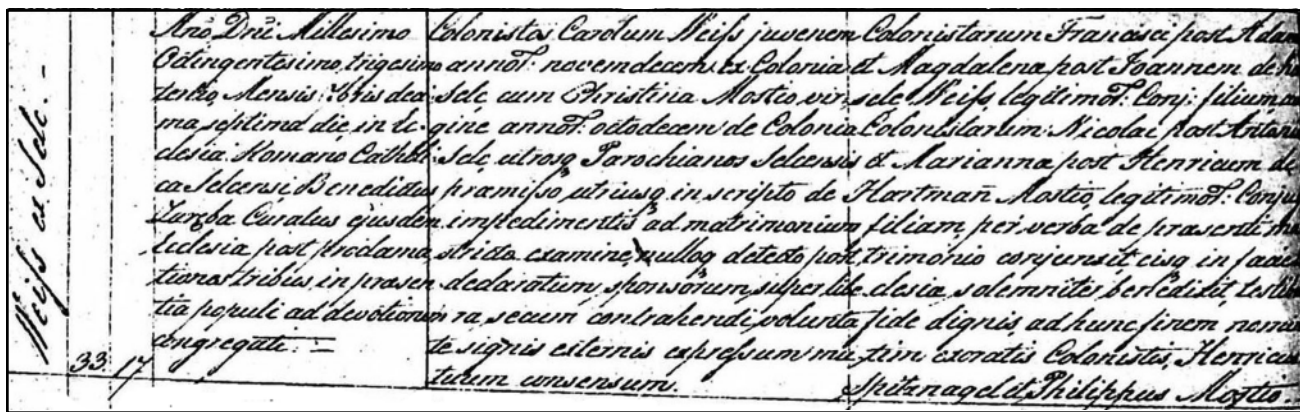 Weiss ex Selc. -
33.
17
Año Dñi Millesimo
Octingentesimo, trigesimo
tertio, Mensis 7bris deci-
ma septima die, in Ec-
clesia Romano Catholi-
ca Selcensi Benedictus
Curatus ejusdem
Ecclesia post proclama
tiones tribus, in præsen
tia populi ad devotionem
congregati. =
Colonistas Carolum Weiss juvenem
annoř: novemdecem ex Colonia
Selc, cum Christina Mostio vir-
gine annoř: octodecem de Colonia
Selc, utrosq Parochianos Selcensis
præmisso, utriusq in scripto de
impedimentis ad matrimonium
stricto examine, nulloq detecto post
declaratum, sponsorum, super libe
ra, secum contrahendi, volunta
te signis externis expressum mu
tuum consensum.
Colonistarum Francisci post Adam
et Magdalena post Joannem de
sele Weiss, legitimoř: Conj: filium
Colonistarum Nicolai post
et Marianna post Henricum de
Hartmañ Mostio, legitimoř:
filiam per verba de præsenti ma
trimonio conjunxit, eisq in facie
clesia solemniter benedixit,
fide dignis, ad hunc finem nomina
tim exoratis Colonistis, Henricus
Spitznagel et Philippus Mostio.